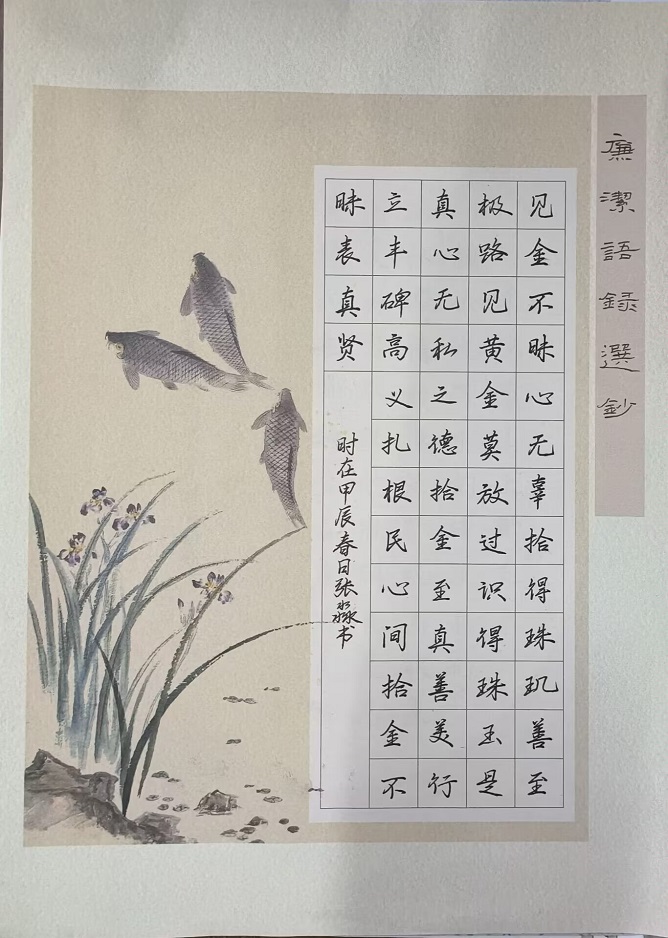 廉潔語録選鈔
见金不昧心无辜拾得珠玑善至
极路见黄金莫放过识得珠玉是
真心无私之德拾金至真善美行
立丰碑高义扎根民心间拾金不
昧表真贤
时在甲辰春日张淼书